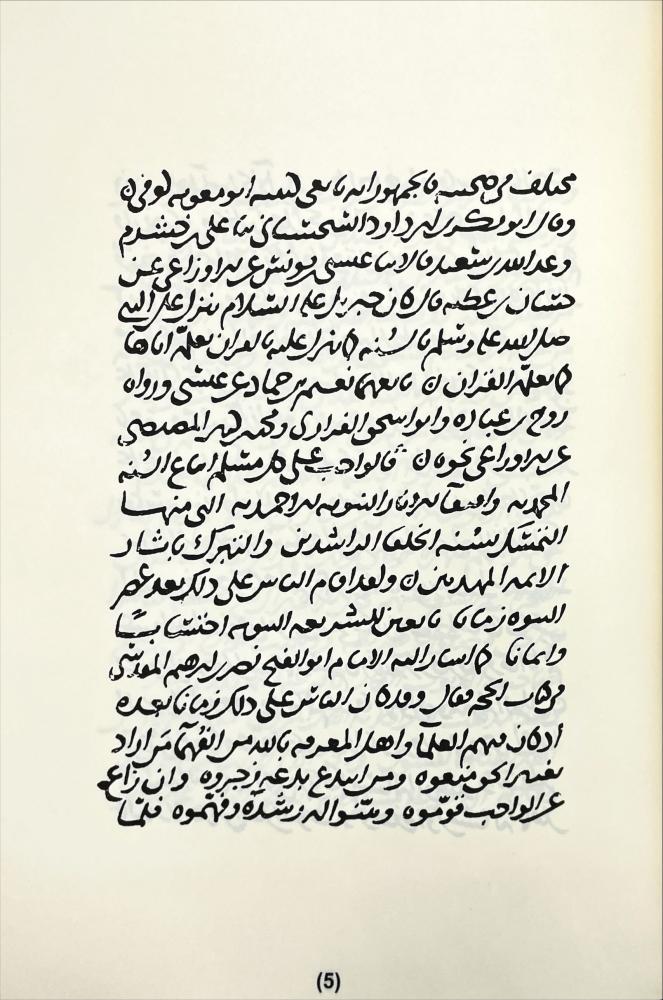 مختلف في صحبته فالجمهور انه تابعي كنيته ابو معويه توفي
وقال ابو بكر بن ابي داود السجستاني ثنا علي بن خشرم
وعبد الله بن سعيد قالا ثنا عيسى بن يونس عن الاوزاعي عن
حسان بن عطيه قال كان جبريل عليه السلام ينزل على النبي
صلى الله عليه وسلم بالسنه كما ينزل عليه بالقران يعلمه اياها
كما يعلمه القران تابعهما نعيم بن حماد عن عيسى ورواه
روح بن عباده وابو اسحق الفزاري ومحمد بن كثير المصيصي
عن الاوزاعي نحوه فالواجب على كل مسلم اتباع السنه
المحمديه واقتفا الاثار النبويه الاحمديه التي منها
التمسك بسنه الخلفا الراشدين والتبرك باثار
الائمه المهديين ولقد اقام الناس على ذلك بعد عصر
النبوه زمانا تابعين للشريعه النبويه احتسابا
وايمانا كما اشار اليه الامام ابو الفتح نصر بن ابرهيم المقدسي
في كتاب الحجه فقال وقد كان الناس على ذلك زمانا بعده
اذ كان فيهم العلما واهل المعرفه بالله من الفهما من اراد
تغيير الحق منعوه ومن ابتدع بدعه زجروه وان زاغ
عن الواجب قوموه وبينوا له رشده وفهموه فلما
(5)